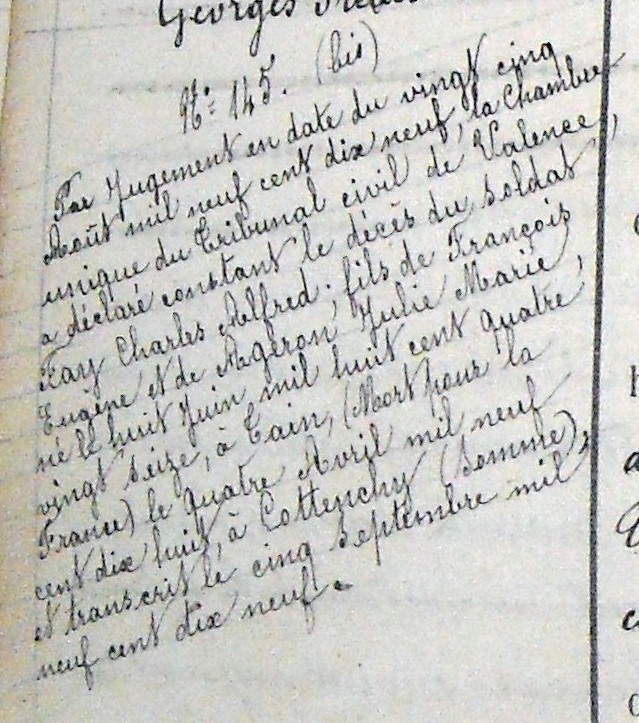 Georges
N.º 145. (bis)
Par Jugement en date du vingt cinq
Août mil neuf cent dix neuf, la Chambre
unique du Tribunal civil de Valence,
a déclaré constant le décès du soldat
Fay Charles Alfred, fils de François
Eugène et de Ageron Julie Marie,
né le huit Juin mil huit cent quatre
vingt seize, à Tain, (Mort pour la
France) le quatre Avril mil neuf
cent dix huit, à Cottenchy (Somme),
et transcrit le cinq septembre mil
neuf cent dix neuf.